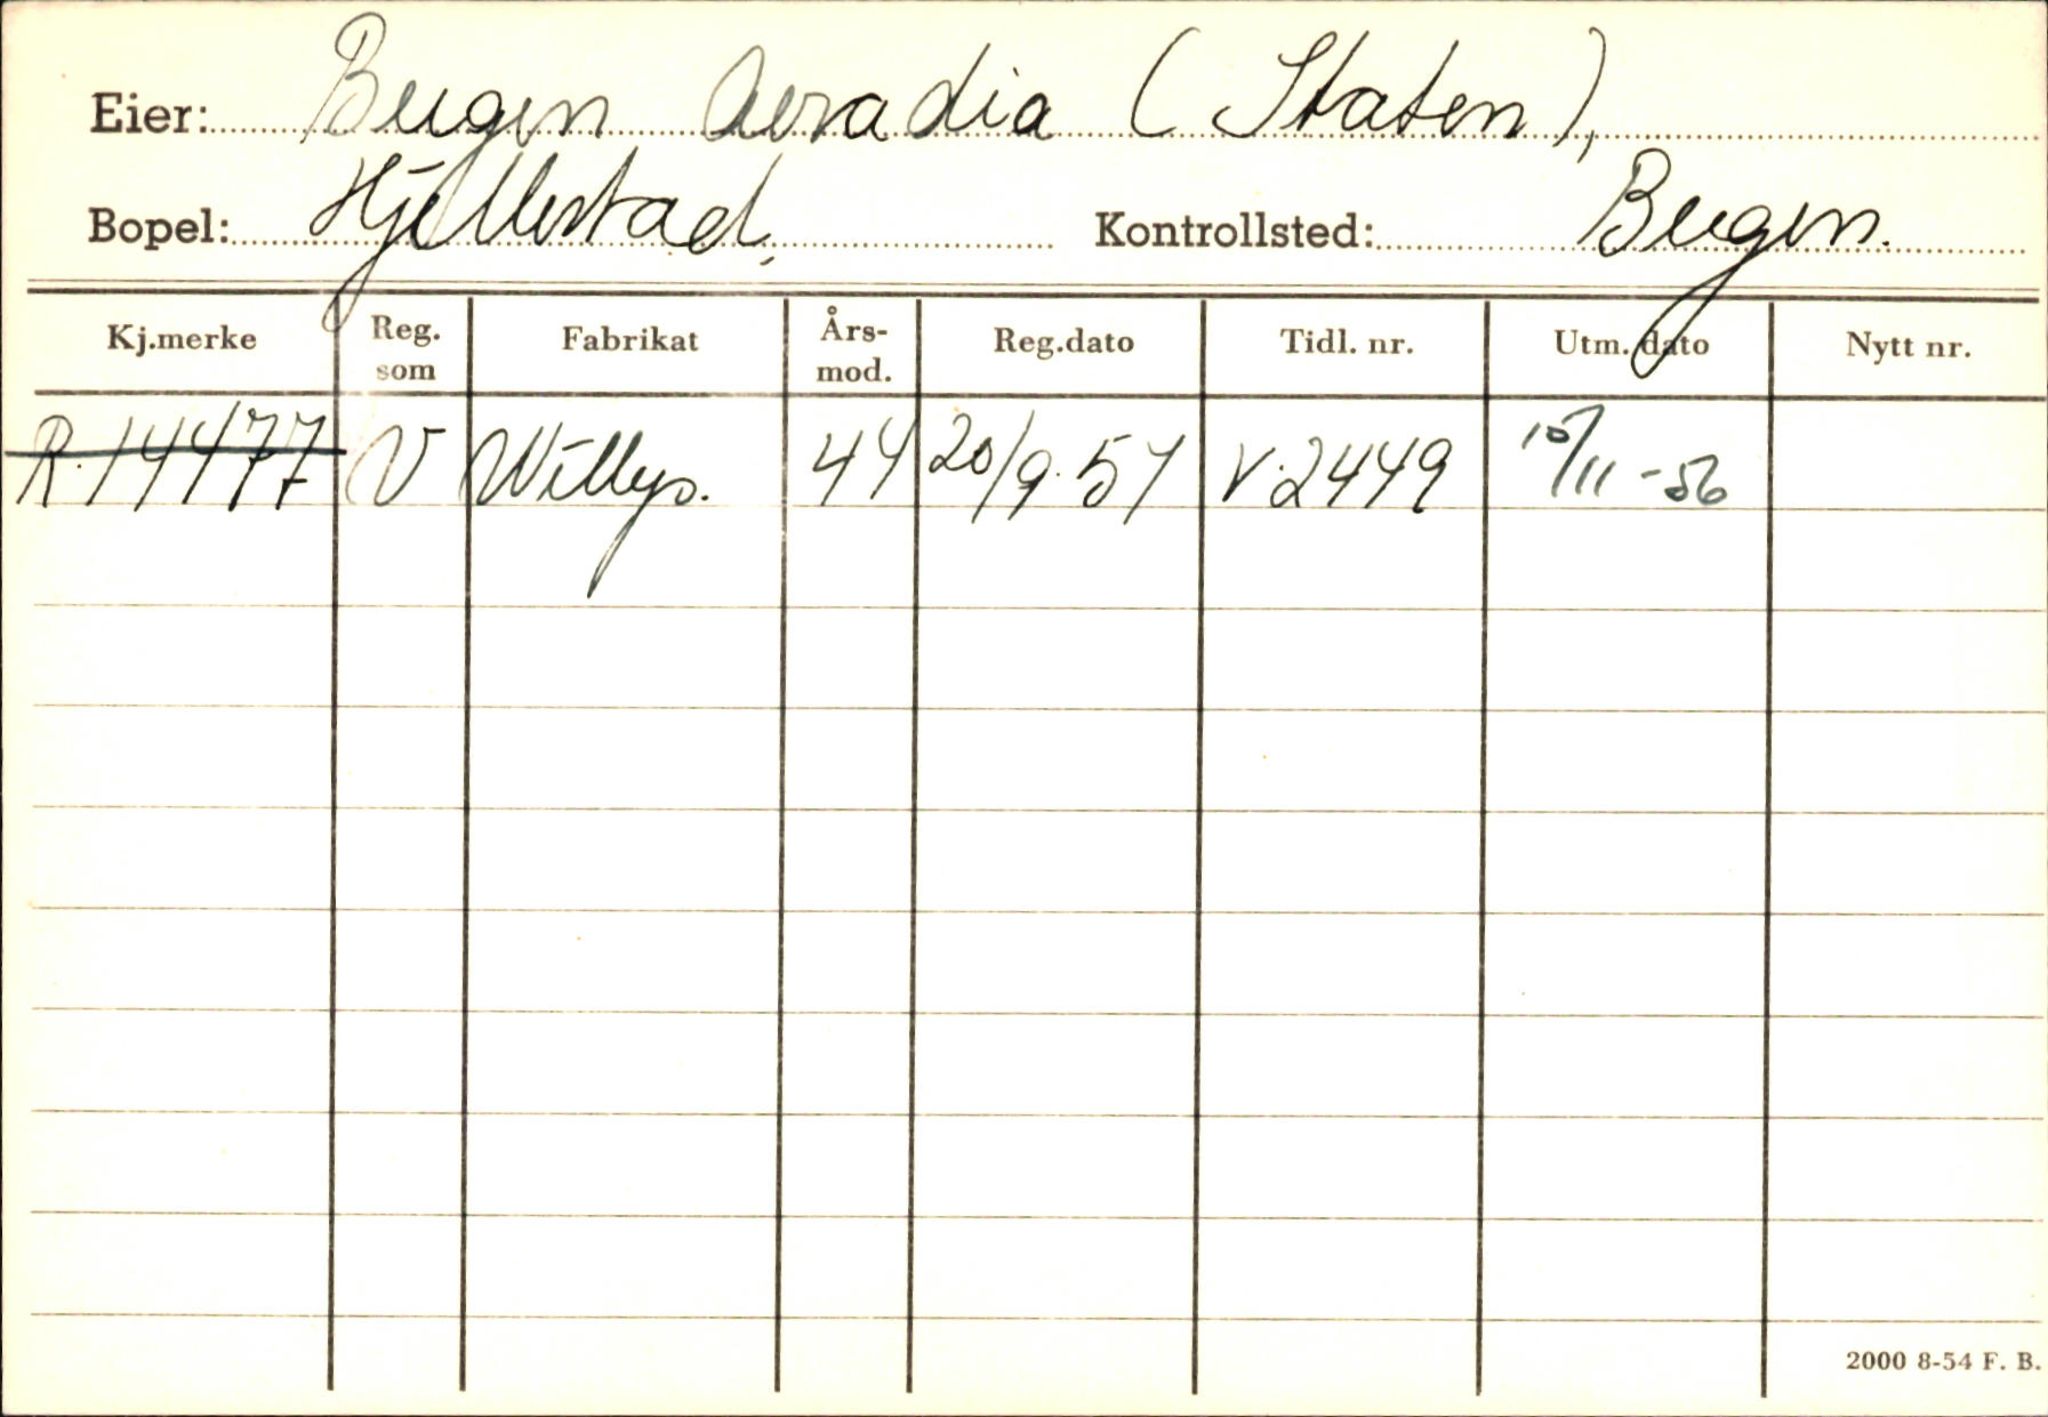 Eier: Bergen Aeradia (Staten),
Bopel: Hjellestad, Kontrollsted: Bergen.
Kj.merke Reg. som Fabrikat Års-mod. Reg.dato Tidl. nr. Utm. dato Nytt nr.
R.14477 V Willys. 44 20/9.54 V.2449 15/11-56
2000 8-54 F. B.